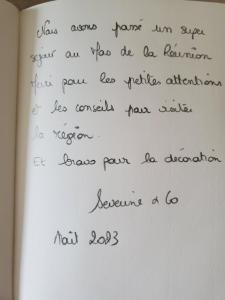 Nous avons passé un super
séjour au Mas de la Réunion
Merci pour les petites attentions
et les conseils pour visiter
la région.
Et bravo pour la décoration
Severine & Co
Août 2023